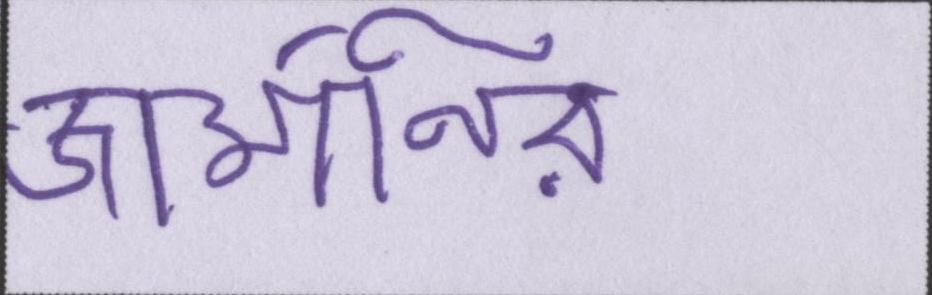 জার্মানির